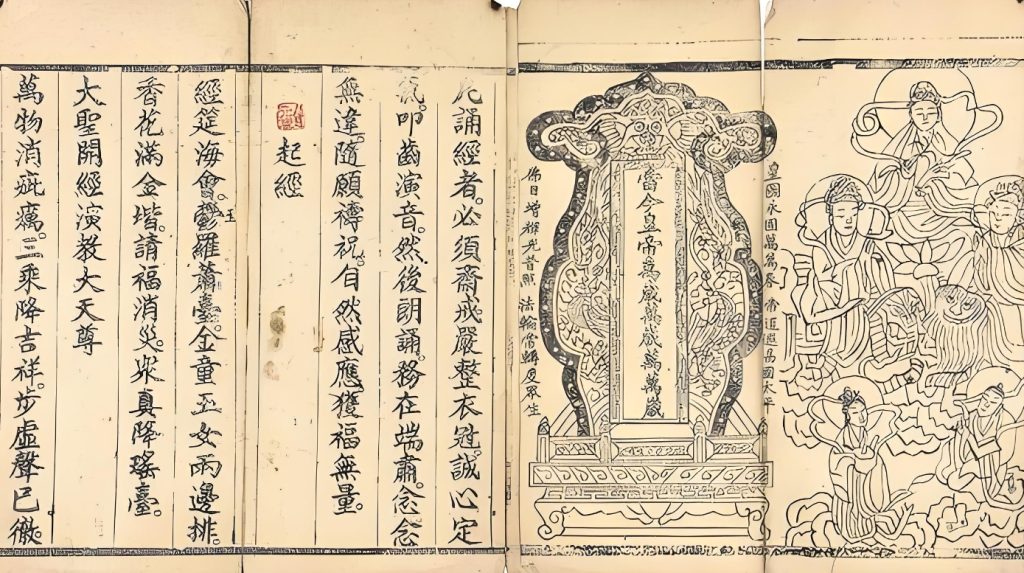 皇圖永固萬萬春 帝道遐昌國太平
當今皇帝萬歲萬歲萬萬歲
佛日增輝光普照 法輪常轉度眾生
凡誦經者。必須齋戒嚴整衣冠。誠心定
氣。叩齒演音。然後朗誦。務在端肅。念念
無違。隨願禱祝。自然感應獲福無量。
起經
經筵海會。鬱羅蕭臺。金童玉女兩邊排。
香花滿金堦。請福消災。眾真降瑤臺。
大聖開經演教大天尊
萬物消疵癘。三乘降吉祥。步虛聲已徹。